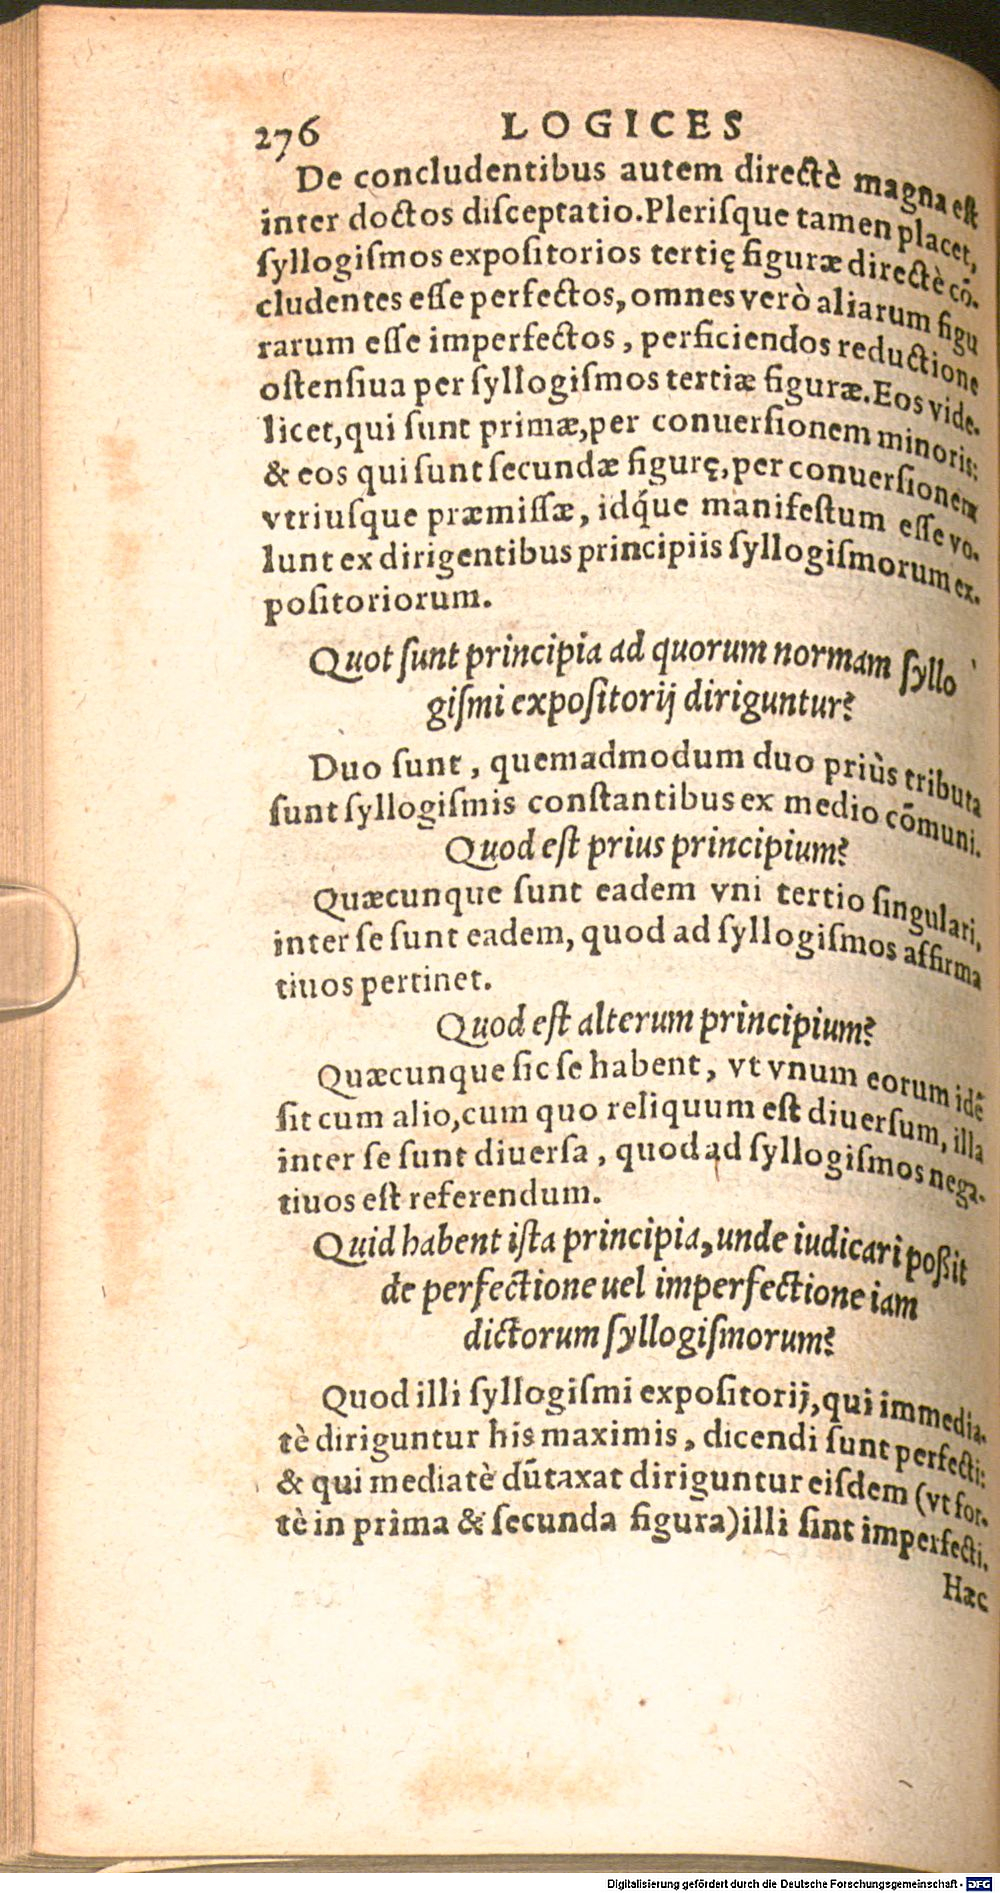 276 LOGICES
De concludentibus autem directè magna est
inter doctos disceptatio. Plerisque tamen placet,
syllogismos expositorios tertię figuræ directè cō-
cludentes esse perfectos, omnes verò aliarum figu
rarum esse imperfectos, perficiendos reductione
ostensiua per syllogismos tertiæ figuræ. Eos vide-
licet, qui sunt primæ, per conuersionem minoris:
& eos qui sunt secundæ figurę, per conuersionem
vtriusque præmissæ, idq́ue manifestum esse vo-
lunt ex dirigentibus principiis syllogismorum ex-
positoriorum.
Quot sunt principia ad quorum normam syllo
gismi expositorij diriguntur?
Duo sunt, quemadmodum duo priùs tributa
sunt syllogismis constantibus ex medio cōmuni.
Quod est prius principium?
Quæcunque sunt eadem vni tertio singulari,
inter se sunt eadem, quod ad syllogismos affirma
tiuos pertinet.
Quod est alterum principium?
Quæcunque sic se habent, vt vnum eorum idē
sit cum alio, cum quo reliquum est diuersum, illa
inter se sunt diuersa, quod ad syllogismos nega-
tiuos est referendum.
Quid habent ista principia, unde iudicari poßit
de perfectione uel imperfectione iam
dictorum syllogismorum?
Quod illi syllogismi expositorij, qui immedia-
tè diriguntur his maximis, dicendi sunt perfecti:
& qui mediatè dūtaxat diriguntur eisdem (vt for-
tè in prima & secunda figura) illi sint imperfecti.
Hæc
Digitalisierung gefördert durch die Deutsche Forschungsgemeinschaft - DFG